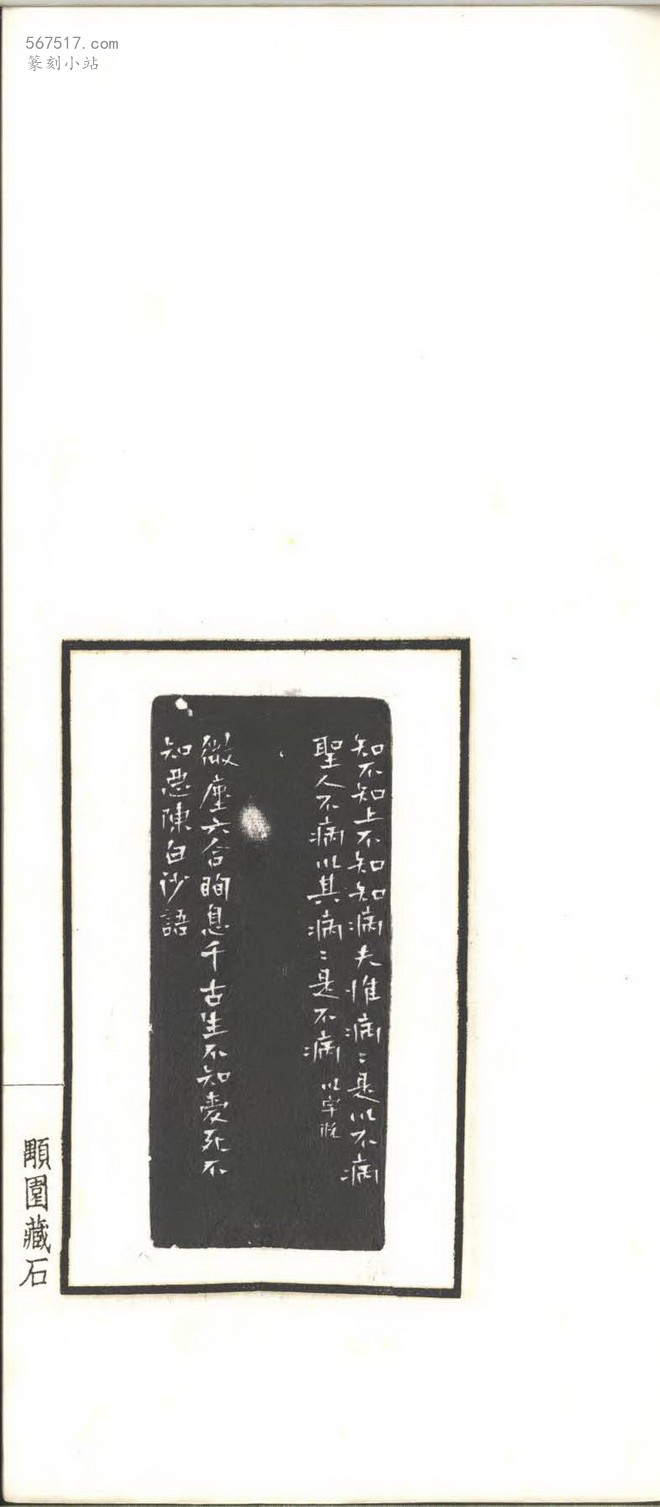 567517.com
篆刻小站
知不知上不知知病夫惟病〻是以不病
聖人不病以其病〻是不病 以字脱
微塵六合瞬息千古生不知愛死不
知惡陳白沙語
顒園藏石